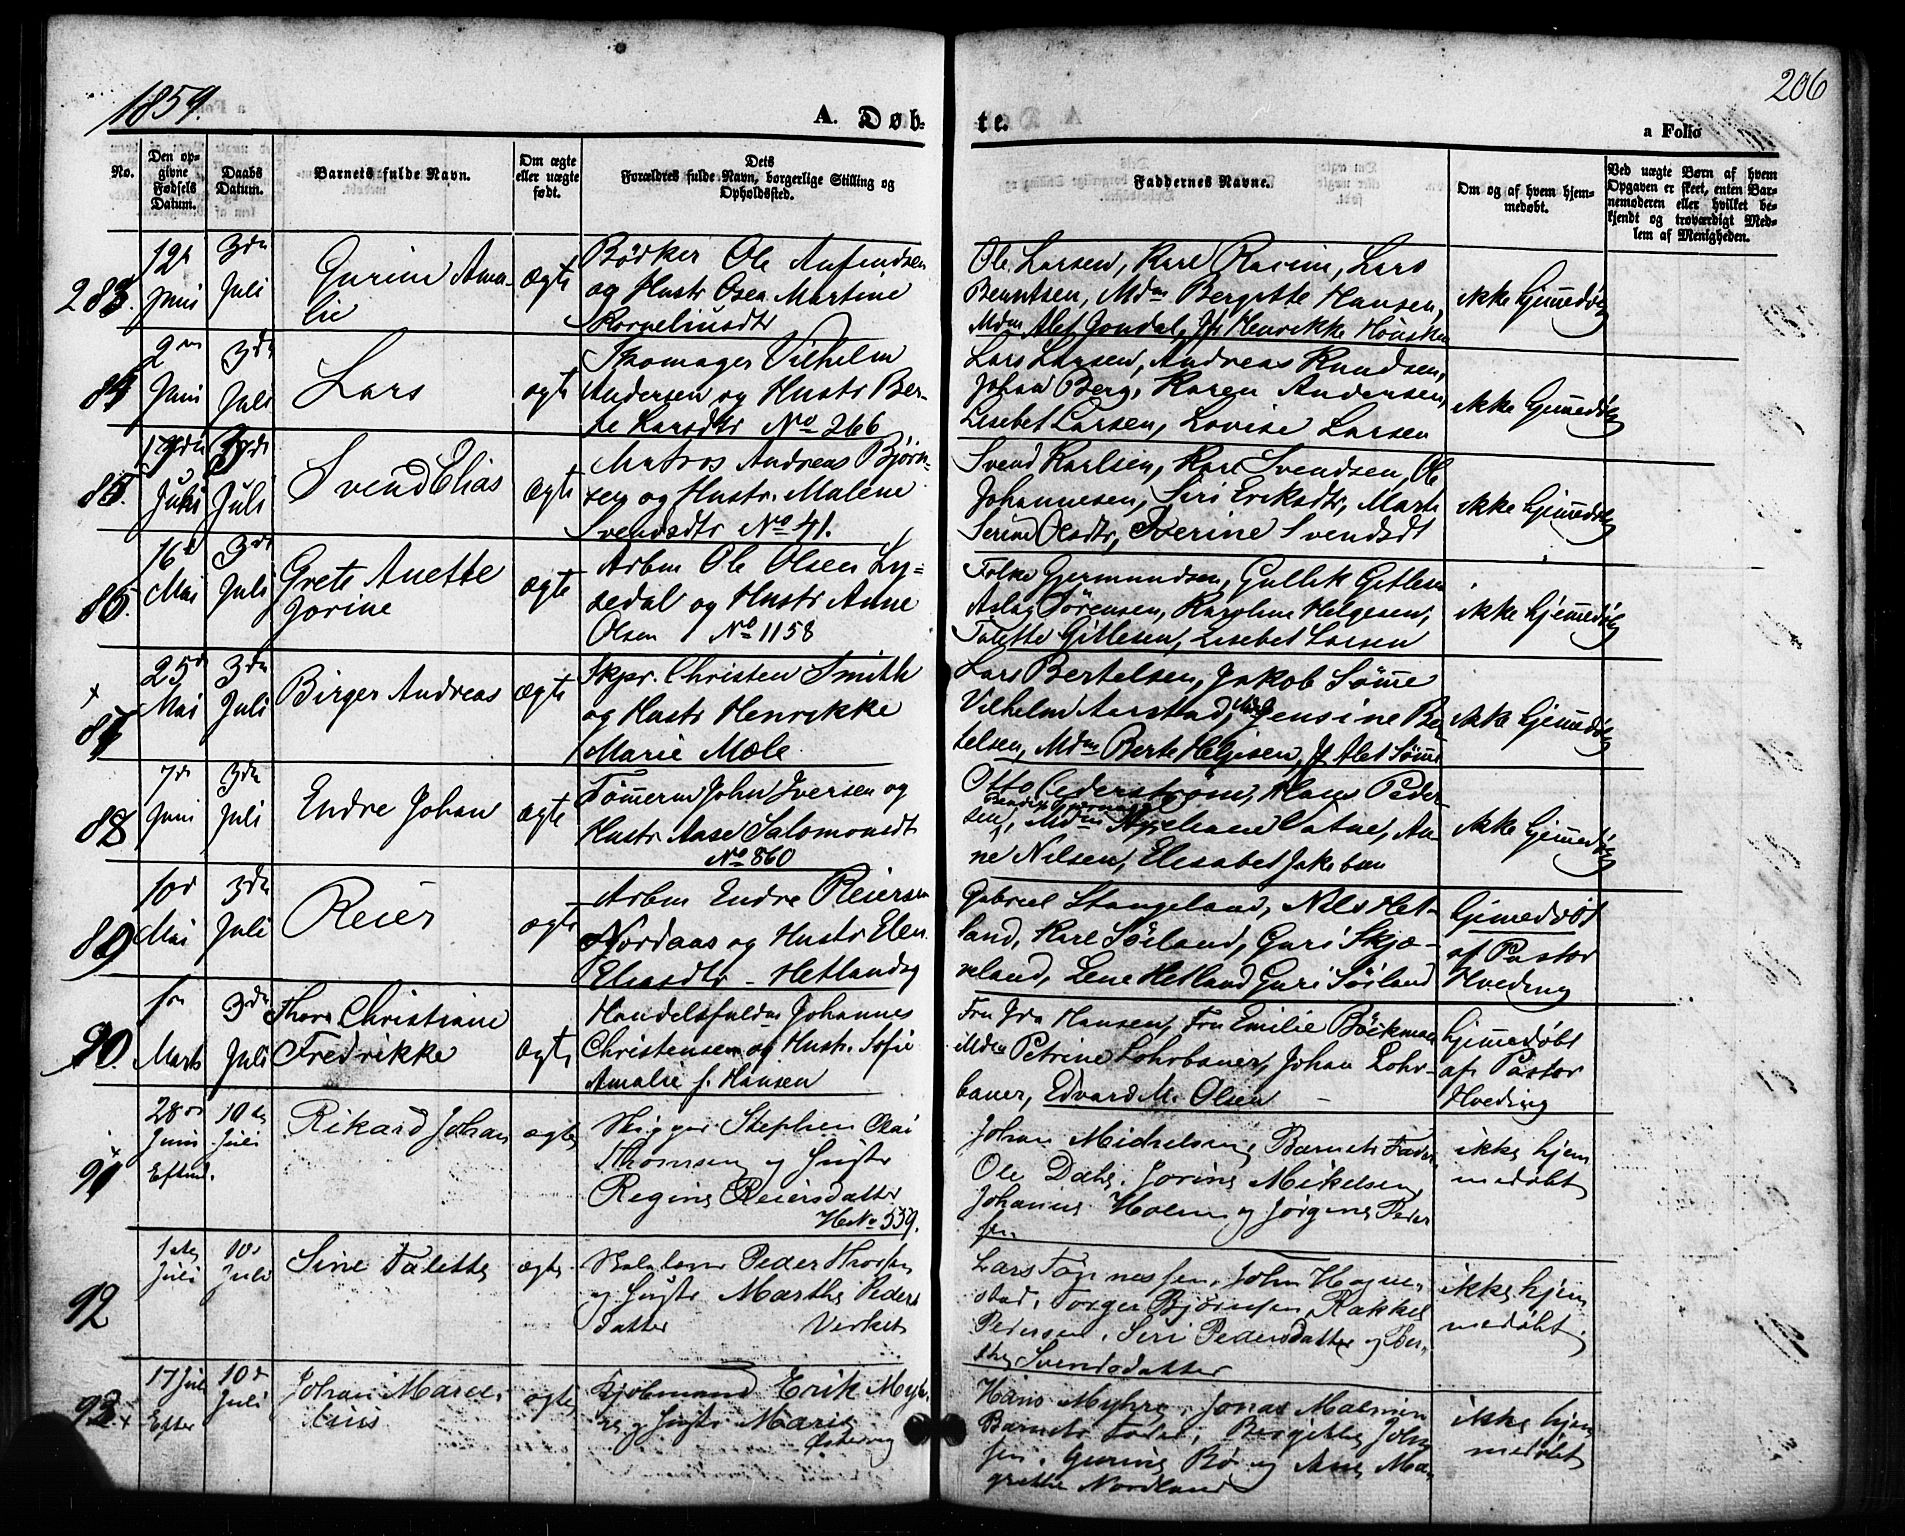 1859.
206
A. Døb-
te.
a Folio
No.
Den op-
givne
Fødsels
Datum.
Daabs
Datum.
Barnets fulde Navn.
Om ægte
eller uægte
født.
Dets
Forældres fulde Navn, borgerlige Stilling og
Opholdssted.
Faddernes Navne.
Om og af hvem hjem-
medøbt.
Ved uægte Børn af hvem
Opgaven er skeet, enten Bar-
nemoderen eller hvilket be-
kjendt og troværdigt Med-
lem af Menigheden.
283.
12te
Juni
3die
Juli
Gurine Ama-
lie
ægte
Bødker Ole Anfindsen
og Hustr Osea Martine
Korneliusdtr
Ole Larsen, Karl Rasm, Lars
Berntsen, Mdm Bergitte Hansen,
Mdm Alet Jondal, Jfr Henrikke
ikke hjemmedøbt
84
2den
Juni
3die
Juli
Lars
ægte
Skomager Vilhelm
Andersen og Hustr Ber-
te Larsdtr No 266
Lars Larsen, Andreas Knudsen,
Johan Berg, Karen Andersen,
Lisebet Larsen, Lovise Larsen
ikke hjemmedøbt
85.
Juni
3die
Juli
Svend Elias
ægte
Matros Andreas Bjørn-
sen og Hustr. Malene
Svendsdtr No 41.
Svend Karlsen, Karl Svendsen, Ole
Johannesen, Siri Eriksdtr, Marte
Serine Olsdtr, Iverine Svendsdt
ikke hjemmedøbt
86.
16d
Mai
3die
Juli
Grete Anette
Jorine
ægte
Arbm Ole Olsen Ly-
sedal og Hustr Anne
Olsen No 1158
Folke Gjermundsen, Gullik Gitlesen
Aslag Sørensen, Karoline Helgesen,
Talette Gitlesen, Lisebet Larsen
ikke hjemmedøbt
87
25d
Mai
3die
Juli
Birger Andreas
ægte
Skpr. Christen Smith
og Hustr Henrikke
Marie Mæle
Lars Bertelsen, Jakob Sømme
Vilhelm Aarstad, Jensine Ber
telsen, Mdm Berte Helgesen, Jf Alet Sømme
ikke hjemmedøbt
88
7de
Juni
3die
Juli
Endre Johan
ægte
Tømerm John Iversen og
Hustr Aase Salomonsdt
No 860
Otto Cederstrøm, Hans Peder-
sen, Mdm Catne, An-
ne Nilsen, Elisabet Jakobsen
ikke hjemmedøbt
89
10d
Mai
3die
Juli
Reier
ægte
Arbm Endre Reiersen
Nordaas og Hustr Elen
Eliasdtr - Hetlandsg
Gabriel Stangeland, Nils Het-
land, Karl Søiland, Guri Skjæ-
veland, Lene Hetland Guri Søiland
hjemedøbt
af Pastor
Hveding
90.
1ste
Marts
3die
Juli
Thora Christiane
Fredrikke
ægte
Handelsfuldm Johannes
Christensen og Hustr. Sofie
Amalie f. Hansen
Fru Ida Hansen, Fru Emilie Böckman
Mdm Petrine Lohrbauer, Johan Lohr-
bauer, Edvard M. Olsen -
hjemedøbt
af Pastor
Hveding
91
28de
Juni
Eftmd.
10de
Juli
Rikard Johan
ægte
Skipper Stephen Aai
Thomsen og Hustr
Regine Reiersdatter
HNo 539.
Johan Michelsen, Barnets Fader,
Ole Dahl, Jorine Mikelsen,
Johanne Holm og Jørgine Peder
sen
ikke hjem
medøbt
92
1ste
Juli
10de
Juli
Sine Talette
ægte
Peder Thorsen
og Hustr Marthe Peders
datter Verket
Lars Tønnessen, John Hogne-
stad, Torger Bjørnsen Rakkel
Pedersen, Siri Pedersdatter og Ber-
the Svendsdatter
ikke hjem
medøbt.
93
17 Juli
Efter
10d
Juli
Johan Mare-
lius
ægte
Kjøbmand Erik Myh-
re og Hustr Marie
Østervag
Hans Myhre, Jonas Malmin
Barnets Fader, Bergitte John
sen, Gurine Bø og Ane Mar
grethe Nordland
ikke hjem
medøbt